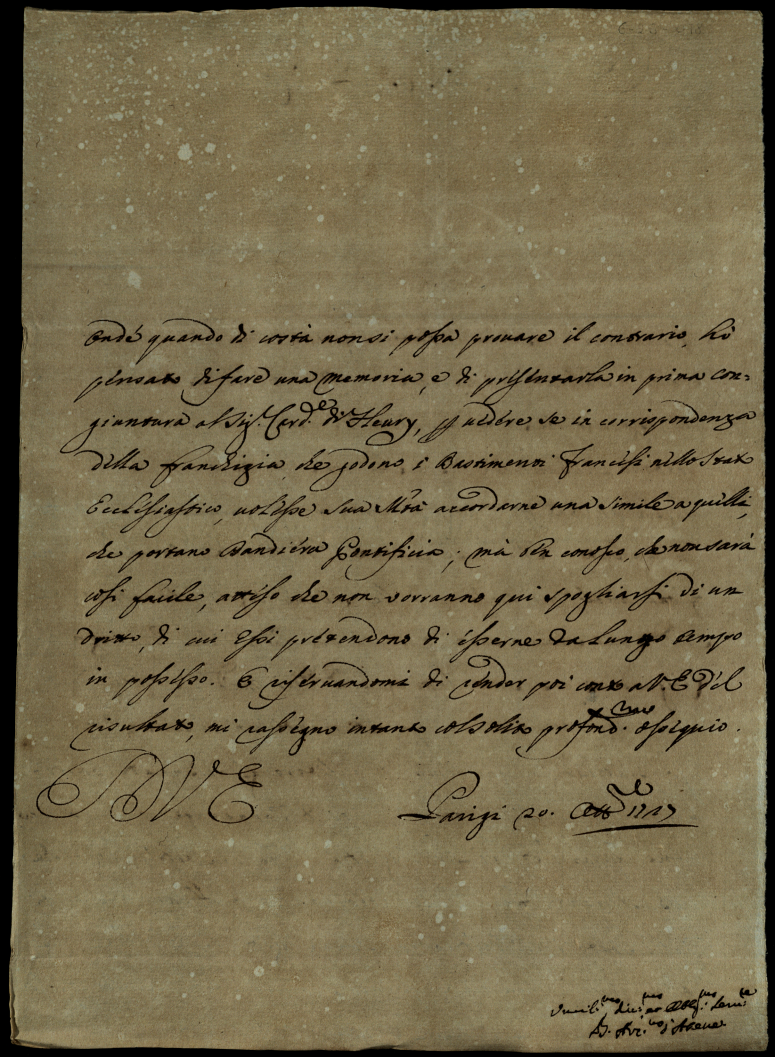 onde quando di costà non si possa provare il contrario, hò
pensato di fare una memoria, e di presentarla in prima con=
giuntura al Sig.r Card.le di Fleury, per vedere se in corrispondenza
della franchigia, che godono i Bastimenti Francesi nello Stato
Ecclesiastico, volesse Sua M.tà accordarne una simile a quelli,
che portano Bandiera Pontificia; mà ben conosco, che non sarà
così facile, atteso che non vorranno qui spogliarsi di un
dritto, di cui essi pretendono di esserne da lungo tempo
in possesso. E riservandomi di render poi conto a V. E. del
risultato, mi rassegno intanto col solito profond.mo ossequio.
D V E
Parigi 20. Ott.re 1727
Umilis.mo Divo.mo Obblig.mo Serv.re
Arc.vo d'Atene